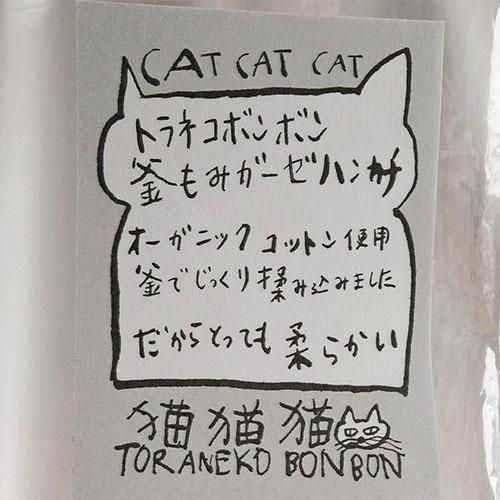 CAT CAT CAT
トラネコボンボン
釜もみガーゼハンカチ
オーガニックコットン使用
釜でじっくり揉み込みました
だからとっても柔らかい
猫猫猫
TORANEKO BONBON